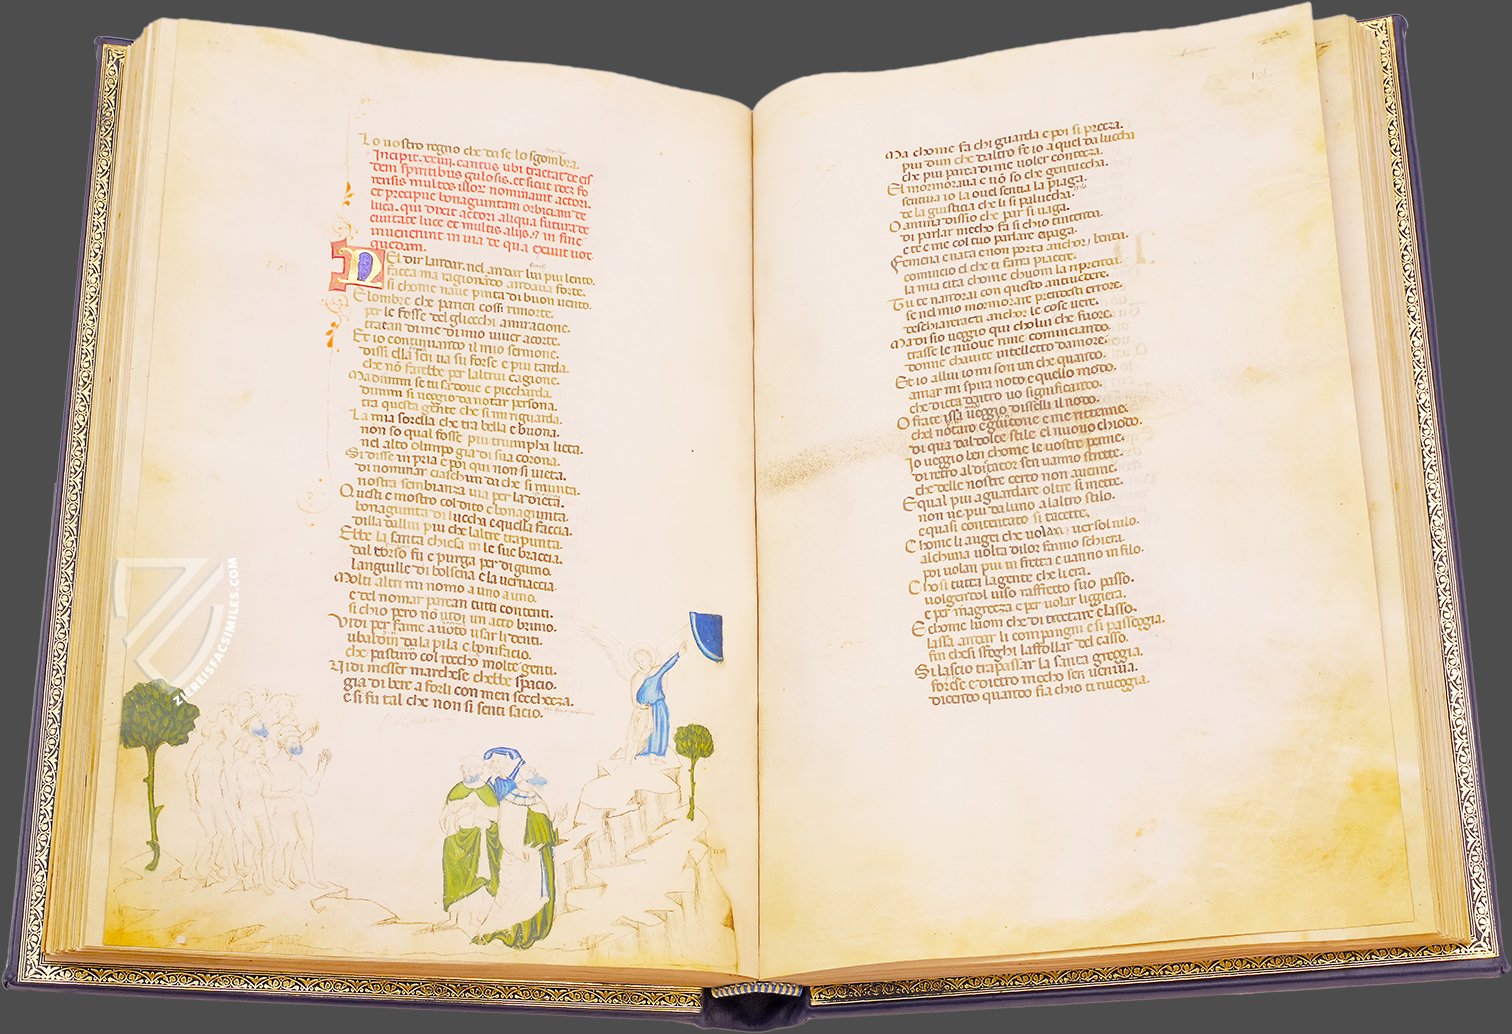 Lo nostro regno che da se lo sgombra.
Incipit .xxiiii. cantus ubi tractat de eis
dem spiritibus gulosis. et sicut
multos nominavit actori.
et precipue bonaguintam orbicianide
luca. qui dixit actori aliqua futura de
civitate luce et multis aliis in fine
invenerunt in via de qua exivit vox
quedam.
NEl dir landar. nel andar lui piu lento.
facea ma ragionando andava forte.
si chome nave pinta di buon vento.
E lombre che parien cose rimorte.
per le fosse del gliocchi amiracione.
traean di me di mio viver acorte.
Et io continuando il mio sermone.
dissi ella sen va su forse e piu tarda.
che nō farebbe per laltrui cagione.
Ma dimmi se tu sai dove e piccharda.
dimmi si veggio da notar persona.
tra questa gente che si mi riguarda.
La mia sorella che tra bella e buona.
non so qual fosse piu triumpha lieta.
nel alto olimpo gia di sua corona.
Si disse in pria e poi qui non si vieta.
di nominar ciaschun da che si munta.
nostra sembianza via per la dieta.
Questi e mostro col dito e bonagiunta.
bonagiunta di luccha e quella faccia.
dilla dallui piu che laltre trapunta.
Ebbe la santa chiesa in le sue braccia.
dal torso fu e purga per digiuno.
languille di bolsena e la vernaccia.
Molti altri mi nomo a uno a uno.
e del nomar parean tutti contenti.
si chio pero nō vidi un atto bruno.
Vidi per fame a voto usar li denti.
ubaldin dala pila e bonifacio.
che pasturo col roccho molte genti.
Vidi messer marchese chebbe spacio.
gia di bere a forli con men seccheza.
e si fu tal che non si senti sacio.
Ma chome fa chi guarda e poi si preza.
piu dun che daltro fe io a quel da lucchi
che piu parea di me voler conteza.
El mormorava e nō so che gentuccha.
sentiva io la ovel sentia la piaga.
de la giusticia che li si pilluccha.
O anima dissio che par si vaga.
di parlar mecho fa si chio tintenda.
e te e me col tuo parlare apaga.
Femena e nata e non porta anchor benda.
comincio el che ti fara piacere.
la mia cita chome chuom la riprenda.
Tu te nandrai con questo antivedere.
se nel mio mormorare prendesti errore.
deschiareranti anchor le cose vere.
Ma di sio veggio qui cholui che fuore.
trasse le nuove rime cominciando.
donne chavete intelletto damore.
Et io allui io mi son un che quando.
amor mi spira noto e quello modo.
che dicta dentro vo significando.
O frate issa veggio disselli il nodo.
chel notaro e guitone e me ritenne.
di qua dal dolce stile el nuovo chiodo.
Io veggio ben chome le vostre penne.
di retro al dictator sen vanno strette.
che delle nostre certo non avenne.
E qual piu a guardare oltre si mette.
non ve piu da luno a laltro stilo.
e quasi contentato si tacette.
Chome li augei che volan verso nilo.
alchuna volta di lor fanno schiera.
poi volan piu in fretta e vanno in filo.
Chosi tutta la gente che li era.
volgendol viso raffretto suo passo.
e per magreeza e per volar liggiera.
E chome luom che di trottare e lasso.
lassa andar li compagni e si passeggia.
fin che si sfoghi laffollar del casso.
Si lascio trapassar la santa greggia.
forese e dietro mecho sen venivia.
dicendo quando fia chio ti riveggia.
ZIEREISFACSIMILES.COM